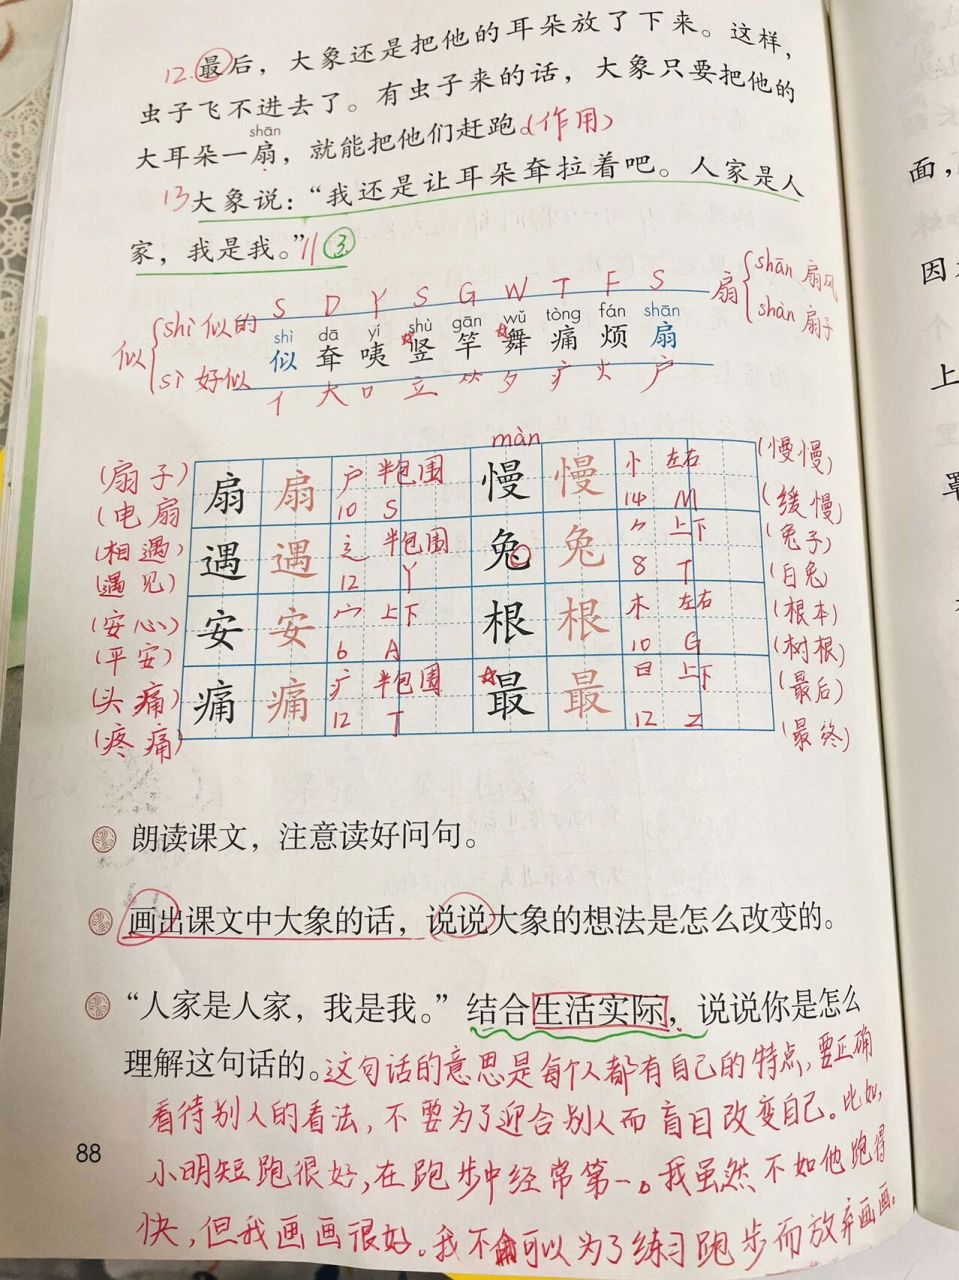 12.最后，大象还是把他的耳朵放了下来。这样，
虫子飞不进去了。有虫子来的话，大象只要把他的
shān
大耳朵一扇，就能把他们赶跑。(作用)
13大象说：“我还是让耳朵耷拉着吧。人家是人
家，我是我。”||③
扇 shān 扇风
shàn 扇子
似 shì 似的
sì 好似
S D Y S G W T F S
shì dā yí shù gān wǔ tòng fán shān
似 耷 咦 竖 竿 舞 痛 烦 扇
亻 大 口 立 ⺮ 夕 疒 火 户
màn
(扇子) 扇 扇 户 半包围 慢 慢 忄 左右 (慢慢)
(电扇 10 S 14 M (缓慢)
(相遇) 遇 遇 辶 半包围 兔 兔 ⺈ 上下 (兔子)
(遇见) 12 Y 8 T (白兔)
(安心) 安 安 宀 上下 根 根 木 左右 (根本)
(平安) 6 A 10 G (树根)
(头痛) 痛 痛 疒 半包围 最 最 曰 上下 (最后)
(疼痛) 12 T 12 Z (最终)
朗读课文，注意读好问句。
画出课文中大象的话，说说大象的想法是怎么改变的。
“人家是人家，我是我。”结合生活实际，说说你是怎么
理解这句话的。这句话的意思是每个人都有自己的特点，要正确
看待别人的看法，不要为了迎合别人而盲目改变自己。比如，
88
小明短跑很好，在跑步中经常第一。我虽然不如他跑得
快，但我画画很好。我不可以为了练习跑步而放弃画画。